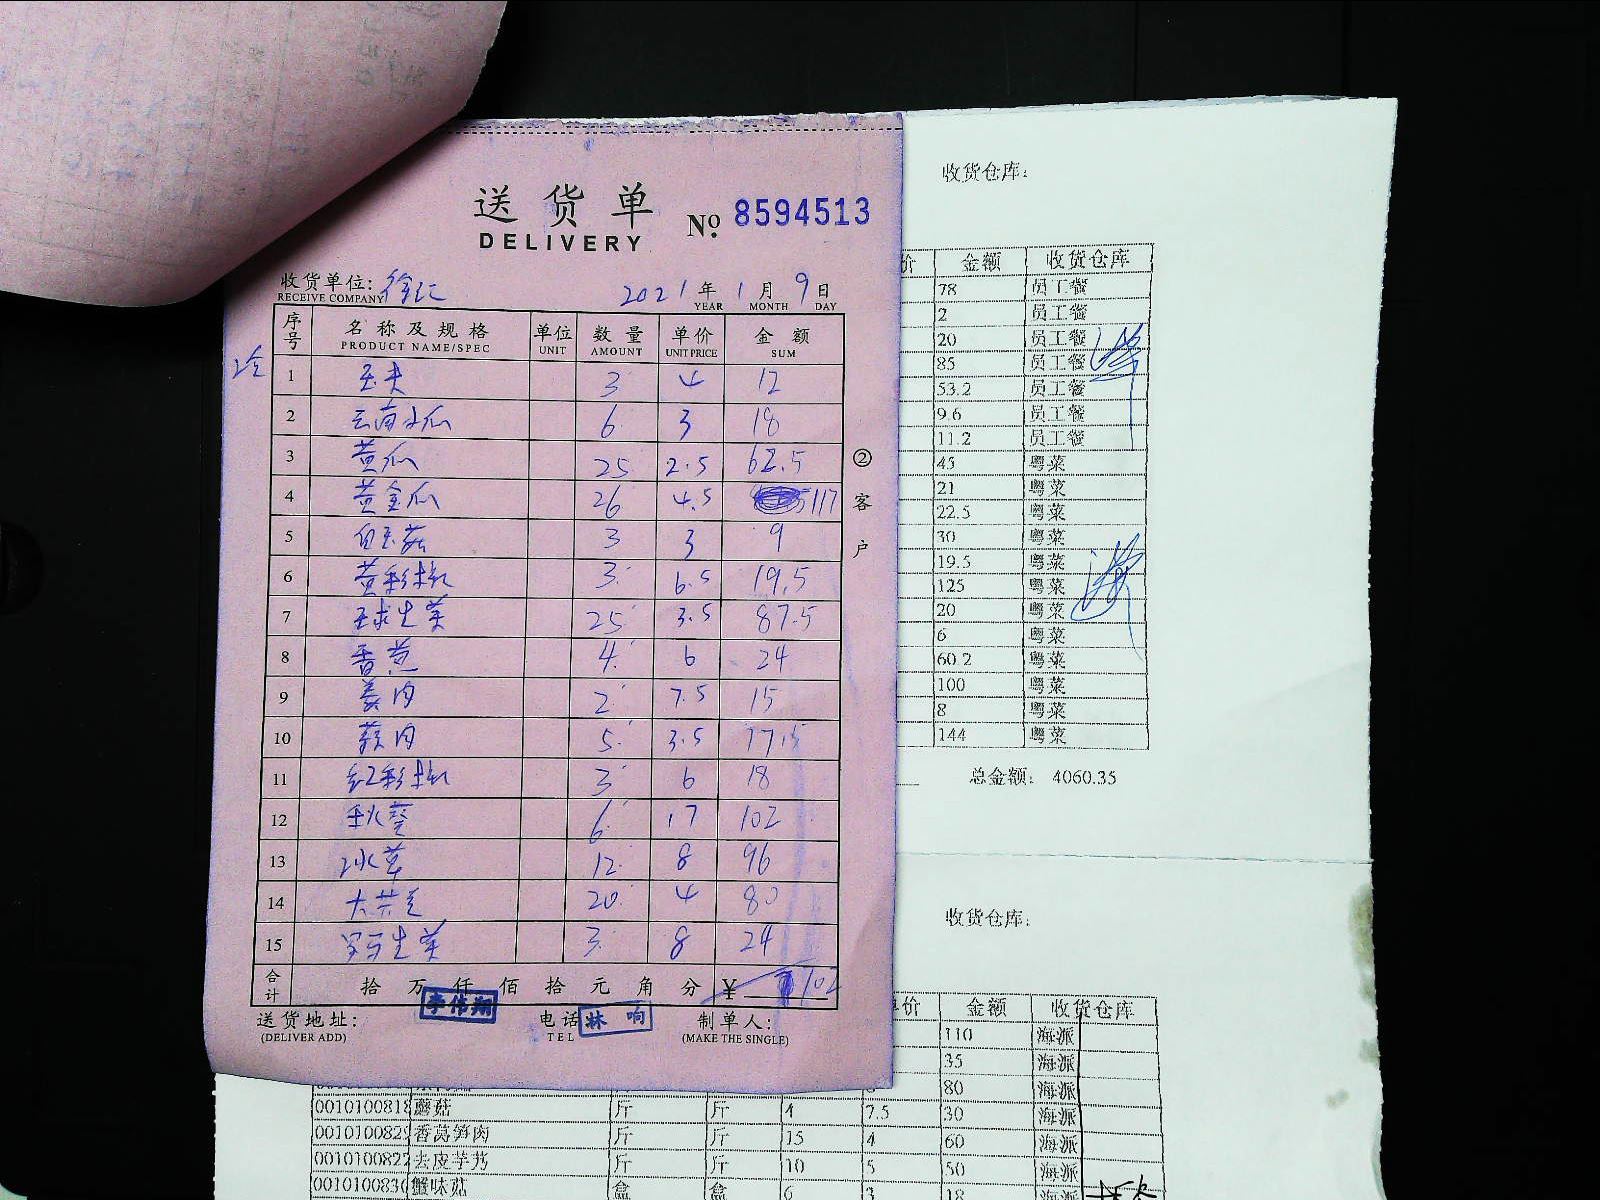 送货单
DELIVERY
№ 8594513
收货单位: 徐汇
RECEIVE COMPANY
2021 年 1 月 9 日
YEAR MONTH DAY
序号 名称及规格 单位 数量 单价 金额
PRODUCT NAME/SPEC UNIT AMOUNT UNIT PRICE SUM
1 3 4 12
2 云南小瓜 6 3 18
3 黄瓜 25 2.5 62.5
4 黄金瓜 26 4.5 117
5 白玉菇 3 3 9
6 黄彩椒 3 6.5 19.5
7 球生菜 25 3.5 87.5
8 香葱 4 6 24
9 姜肉 2 7.5 15
10 蒜肉 5 3.5 17.5
11 红彩椒 3 6 18
12 秋葵 6 17 102
13 冰草 12 8 96
14 20 4 80
15 罗马生菜 3 8 24
合计 拾万仟佰拾元角分 ¥
李伟翔
送货地址: 电话 林响 制单人:
(DELIVER ADD) TEL (MAKE THE SINGLE)
②客户
收货仓库:
价 金额 收货仓库
78 员工餐
2 员工餐
20 员工餐
85 员工餐
53.2 员工餐
9.6 员工餐
11.2 员工餐
45 粤菜
21 粤菜
22.5 粤菜
30 粤菜
19.5 粤菜
125 粤菜
20 粤菜
6 粤菜
60.2 粤菜
100 粤菜
8 粤菜
144 粤菜
总金额: 4060.35
收货仓库:
单价 金额 收货仓库
110 海派
35 海派
80 海派
0010100818 蘑菇 斤 斤 4 7.5 30 海派
001010082 香莴笋肉 斤 斤 15 4 60 海派
0010100822 去皮芋艿 斤 斤 10 5 50 海派
001010083 蟹味菇 盒 盒 6 3 18 海派